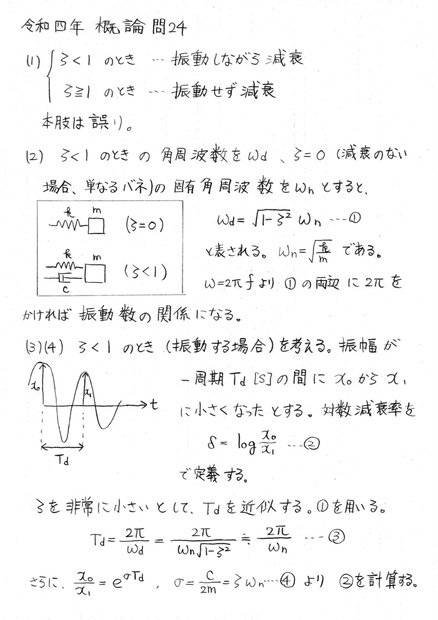 令和四年 概論 問24
(1) { ζ<1 のとき … 振動しながら減衰
ζ≧1 のとき … 振動せず減衰
本肢は誤り。
(2) ζ<1のときの角周波数をωd、ζ=0 (減衰のない
場合、単なるバネ)の固有角周波数をωnとすると、
k m (ζ=0)
k m c (ζ<1)
ωd=√1-ζ² ωn …①
と表される。ωn=√k/m である。
ω=2πf より ①の両辺に 2π を
かければ 振動数の関係になる。
(3)(4) ζ<1 のとき (振動する場合)を考える。振幅が
x₀ x₁ t Td
一周期 Td [s]の間に x₀ から x₁
に小さくなったとする。対数減衰率を
δ = log x₀/x₁ …②
で定義する。
ζを非常に小さいとして、Tdを近似する。①を用いる。
Td = 2π/ωd = 2π/ωn√1-ζ² ≒ 2π/ωn …③
さらに、x₀/x₁ = e^σTd , σ = c/2m = ζωn …④ より ②を計算する。